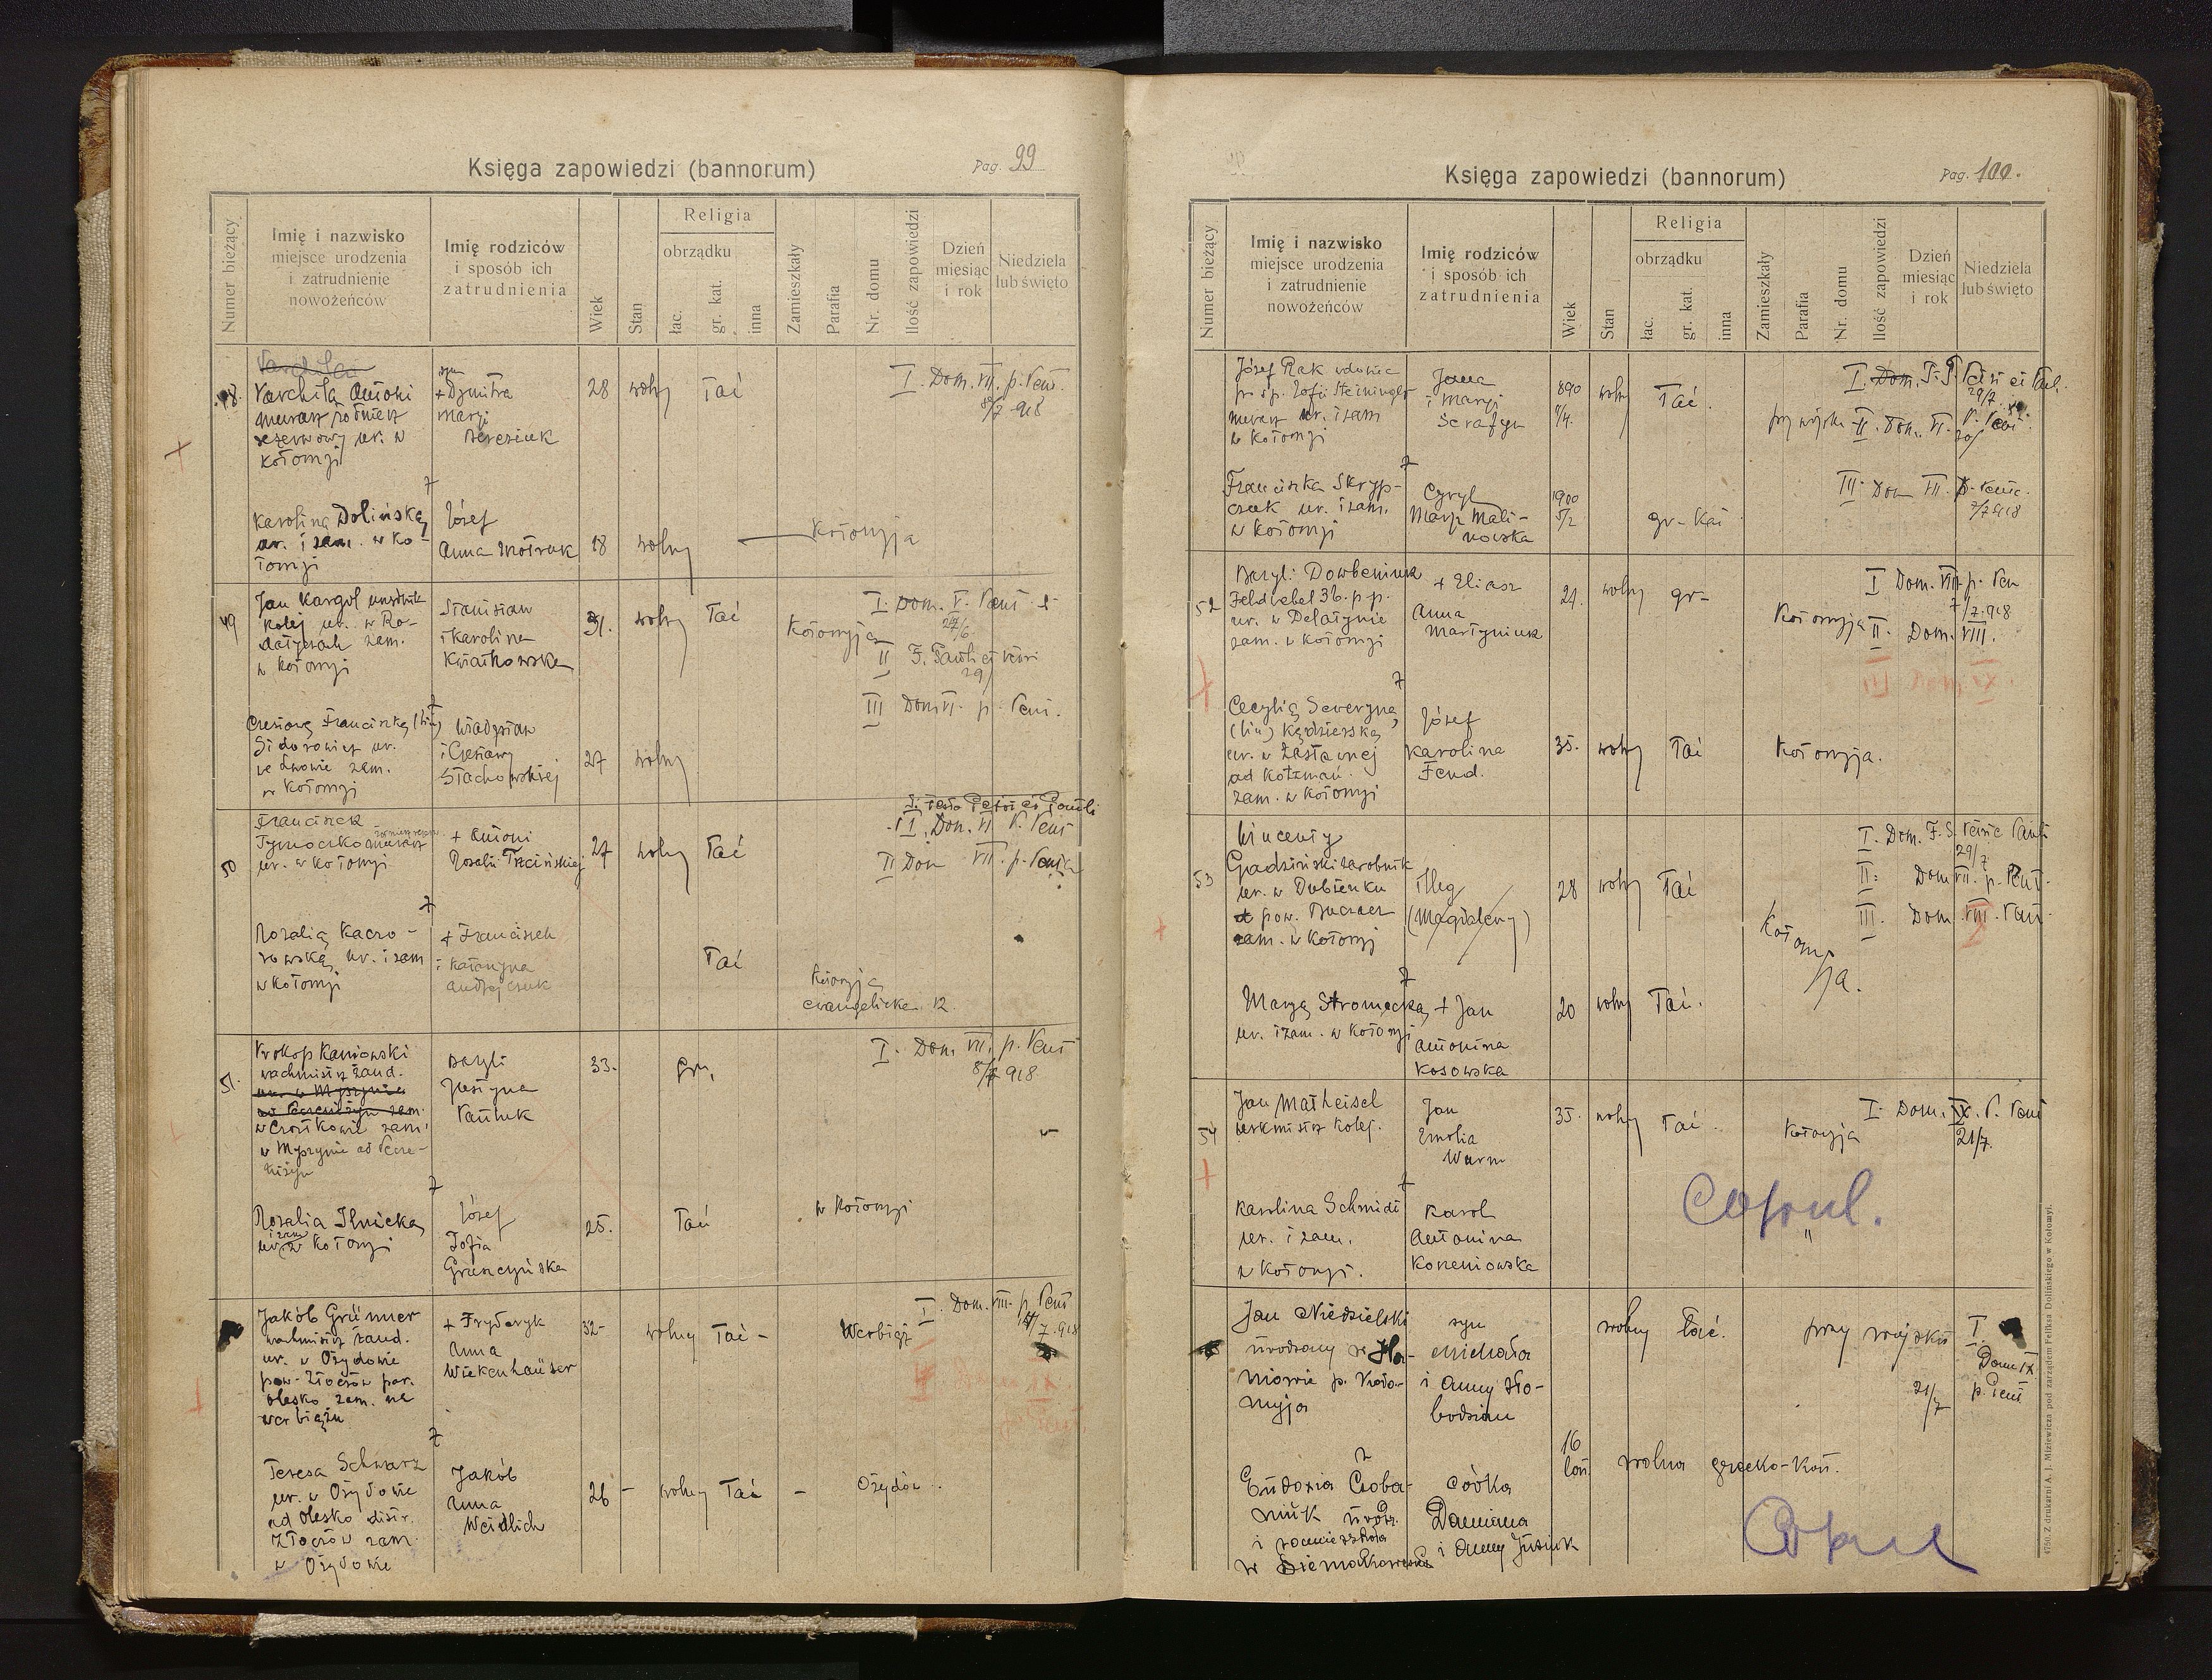 Księga zapowiedzi (bannorum)
Pag. 99
Numer bieżący
Imię i nazwisko
miejsce urodzenia
i zatrudnienie
nowożeńców
Imię rodziców
i sposób ich
zatrudnienia
Wiek
Stan
Religia
obrządku
łac.
gr. kat.
inna
Zamieszkały
Parafia
Nr. domu
Ilość zapowiedzi
Dzień
miesiąc
i rok
Niedziela
lub święto
48.
Varchiła Antoni
murarz żołnierz
rezerwowy ur. w
Kołomyji
syn
+ Dymitra
Maryi
28 wolny łać
I. Dom. VII. p. Pent.
8/7 918
Karolina Dolińska
ur. i zam. w Ko-
łomyji
Józef
Anna
18 wolny
Kołomyja
49
Jan Kargol
kolej ur. w Ro-
zam.
w Kołomyji
Stanisław
i Karolina
Kwiatkowska
31. wolny łać
Kołomyja
I. Dom. V. Pent
27/6
II F. Pauli et Petri
29/
III Dom VI. p. Pent.
Czesiową Franciszkę
Sidorowicz ur.
we Lwowie zam.
w Kołomyji
Władysław
i Czesławy
Stachowskiej
27 wolny
50
Franciszek
Tymoczko murarz
ur. w Kołomyji
+ Antoni
Rozalii Trzcińskiej
27 wolny łać
I. festo Petri et Pauli
II. Dom. VI P. Pent
III Dom VII. p. Pent
Rozalią Kaczo-
rowską ur. i zam
w Kołomyji
+ Franciszek
i Katarzyna
Andrejczuk
łać
Kołomyja
ewangelicka 12.
51.
Prokop Kaniowski
wachmistrz żand.
w Czortkowie zam.
w Myszynie ad Pecze-
niżyn
Bazyli
Justyna
Pawluk
33. gr.
I. Dom. VII. p. Pent
8/7 918
Rozalia Ilnicka
i zam
ur. w Kołomyji
Józef
Zofia
Gruszczyńska
25. łać
w Kołomyji
Jakób Grümer
wachmistrz żand.
ur. w Ożydowie
pow. Złoczów par.
Olesko zam. na
Werbiążu
+ Fryderyk
Anna
Wiekenhauser
32- wolny łać -
Werbiąż
I. Dom. VIII. p. Pent
14/7.918
Teresa Schwarz
ur. w Ożydowie
ad Olesko distr.
Złoczów zam.
w Ożydowie
Jakób
Anna
Weidlich
26 - wolny łać -
Ożydów.
Księga zapowiedzi (bannorum)
Pag. 100.
Numer bieżący
Imię i nazwisko
miejsce urodzenia
i zatrudnienie
nowożeńców
Imię rodziców
i sposób ich
zatrudnienia
Wiek
Stan
Religia
obrządku
łac.
gr. kat.
inna
Zamieszkały
Parafia
Nr. domu
Ilość zapowiedzi
Dzień
miesiąc
i rok
Niedziela
lub święto
Józef Rak wdowiec
po śp. Zofii
murarz ur. i zam
w Kołomyji
Jana
i Maryi
Serafyn
890
7/4.
wolny łać.
przy wojsku
I. Dom.
29/7
II. Dom. VI.
Franciszka Skryp-
czuk ur. i zam.
w Kołomyji
Cyryl
Marya Mali-
nowska
1900
5/2
gr-kat
III Dom VII. p. Pent.
7/7 918
52
Bazyli Dowbeniuk
Feldwebel 36. p. p.
ur. w Delatynie
zam. w Kołomyji
+ Eliasz
Anna
Martyniuk
21. wolny gr-
Kołomyja
I Dom. VII. p. Pen
7/7.918
II. Dom. VIII.
III Dom IX.
Cecylią Seweryną
Kędzierską
ur. w Zastawnej
ad Kotzmań.
zam. w Kołomyji
Józef
Karolina
Fend.
35. wolny łać
Kołomyja.
53
Wincenty
Gradziński zarobnik
ur. w Dubienku
pow. Buczacz
zam. w Kołomyji
Illeg
(Magdaleny)
28 wolny łać
Kołomyja.
I. Dom. F. S. Petri Pauli
29/7
II. Dom VII. p. Pent.
III. Dom. VIII. Pent.
Maryą Stromecką
ur. i zam. w Kołomyji
+ Jan
Antonina
Kosowska
20 wolny łać.
54
Jan Matheisel
werkmistrz kolej.
Jan
Emilia
Wurm
35. wolny łać.
Kołomyja
I. Dom. IX. P. Pent
21/7.
Karolina Schmidt
ur. i zam.
w Kołomyji.
Karol
Antonina
Korzeniowska
"
Copul.
Jan Niedzielski
urodzony w Ha-
niowie p. Koło-
myja
syn
Michała
i Anny Sło-
bodzian
wolny łać.
przy wojsku
I.
Dom IX
p. Pent
21/7
Eudoxia Czoba-
niuk urodz.
i zamieszkała
w Siemakowcach
córka
Damiana
i Anny Jusiuk
16
lat
wolna grecko-kat.
Copul
4750. Z drukarni A. J. Miziewicza pod zarządem Feliksa Dolińskiego w Kołomyi.